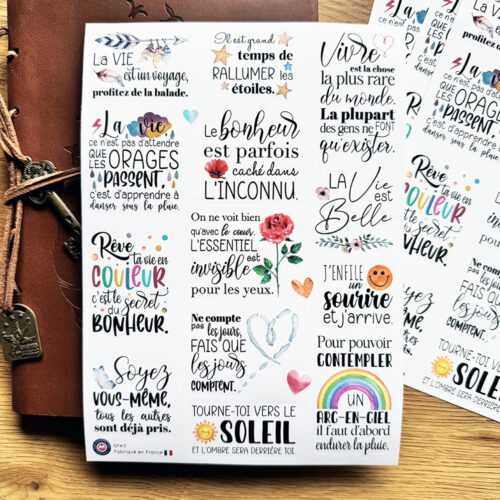 LA VIE
est un voyage,
profitez de la balade.
La vie
ce n'est pas d'attendre
QUE LES
ORAGES
PASSENT,
c'est d'apprendre à
danser sous la pluie.
Rêve
ta vie en
COULEUR
c'est le secret
DU
BONHEUR.
Soyez
VOUS-MÊME,
tous les autres
sont déjà pris.
Fabriqué en France
Il est grand
temps de
RALLUMER les
étoiles.
Le bonheur
est parfois
caché dans
L'INCONNU.
On ne voit bien
qu'avec le coeur.
L'ESSENTIEL
est
invisible
pour les yeux.
Ne compte
pas les jours,
FAIS QUE
les jours
COMPTENT.
TOURNE-TOI VERS LE
SOLEIL
ET L'OMBRE SERA DERRIÈRE TOI
Vivre
est la chose
la plus rare
du monde.
La plupart
des gens ne FONT
qu'exister.
LA Vie
est
Belle
J'ENFILE
un
sourire
et j'arrive.
Pour pouvoir
CONTEMPLER
UN
ARC-EN-CIEL
il faut d'abord
endurer la pluie.
La vie
ce n'est pas d'attendre
QUE LES
ORAGES
PASSENT,
c'est d'apprendre à
danser sous la pluie.
Rêve
ta vie en
COULEUR
c'est le secret
DU
BONHEUR.
Soyez
VOUS-MÊME,
tous les autres
sont déjà pris.
Ne compte
pas les jours,
FAIS QUE
les jours
COMPTENT.
TOURNE-TOI VERS LE
SOLEIL
ET L'OMBRE SERA DERRIÈRE